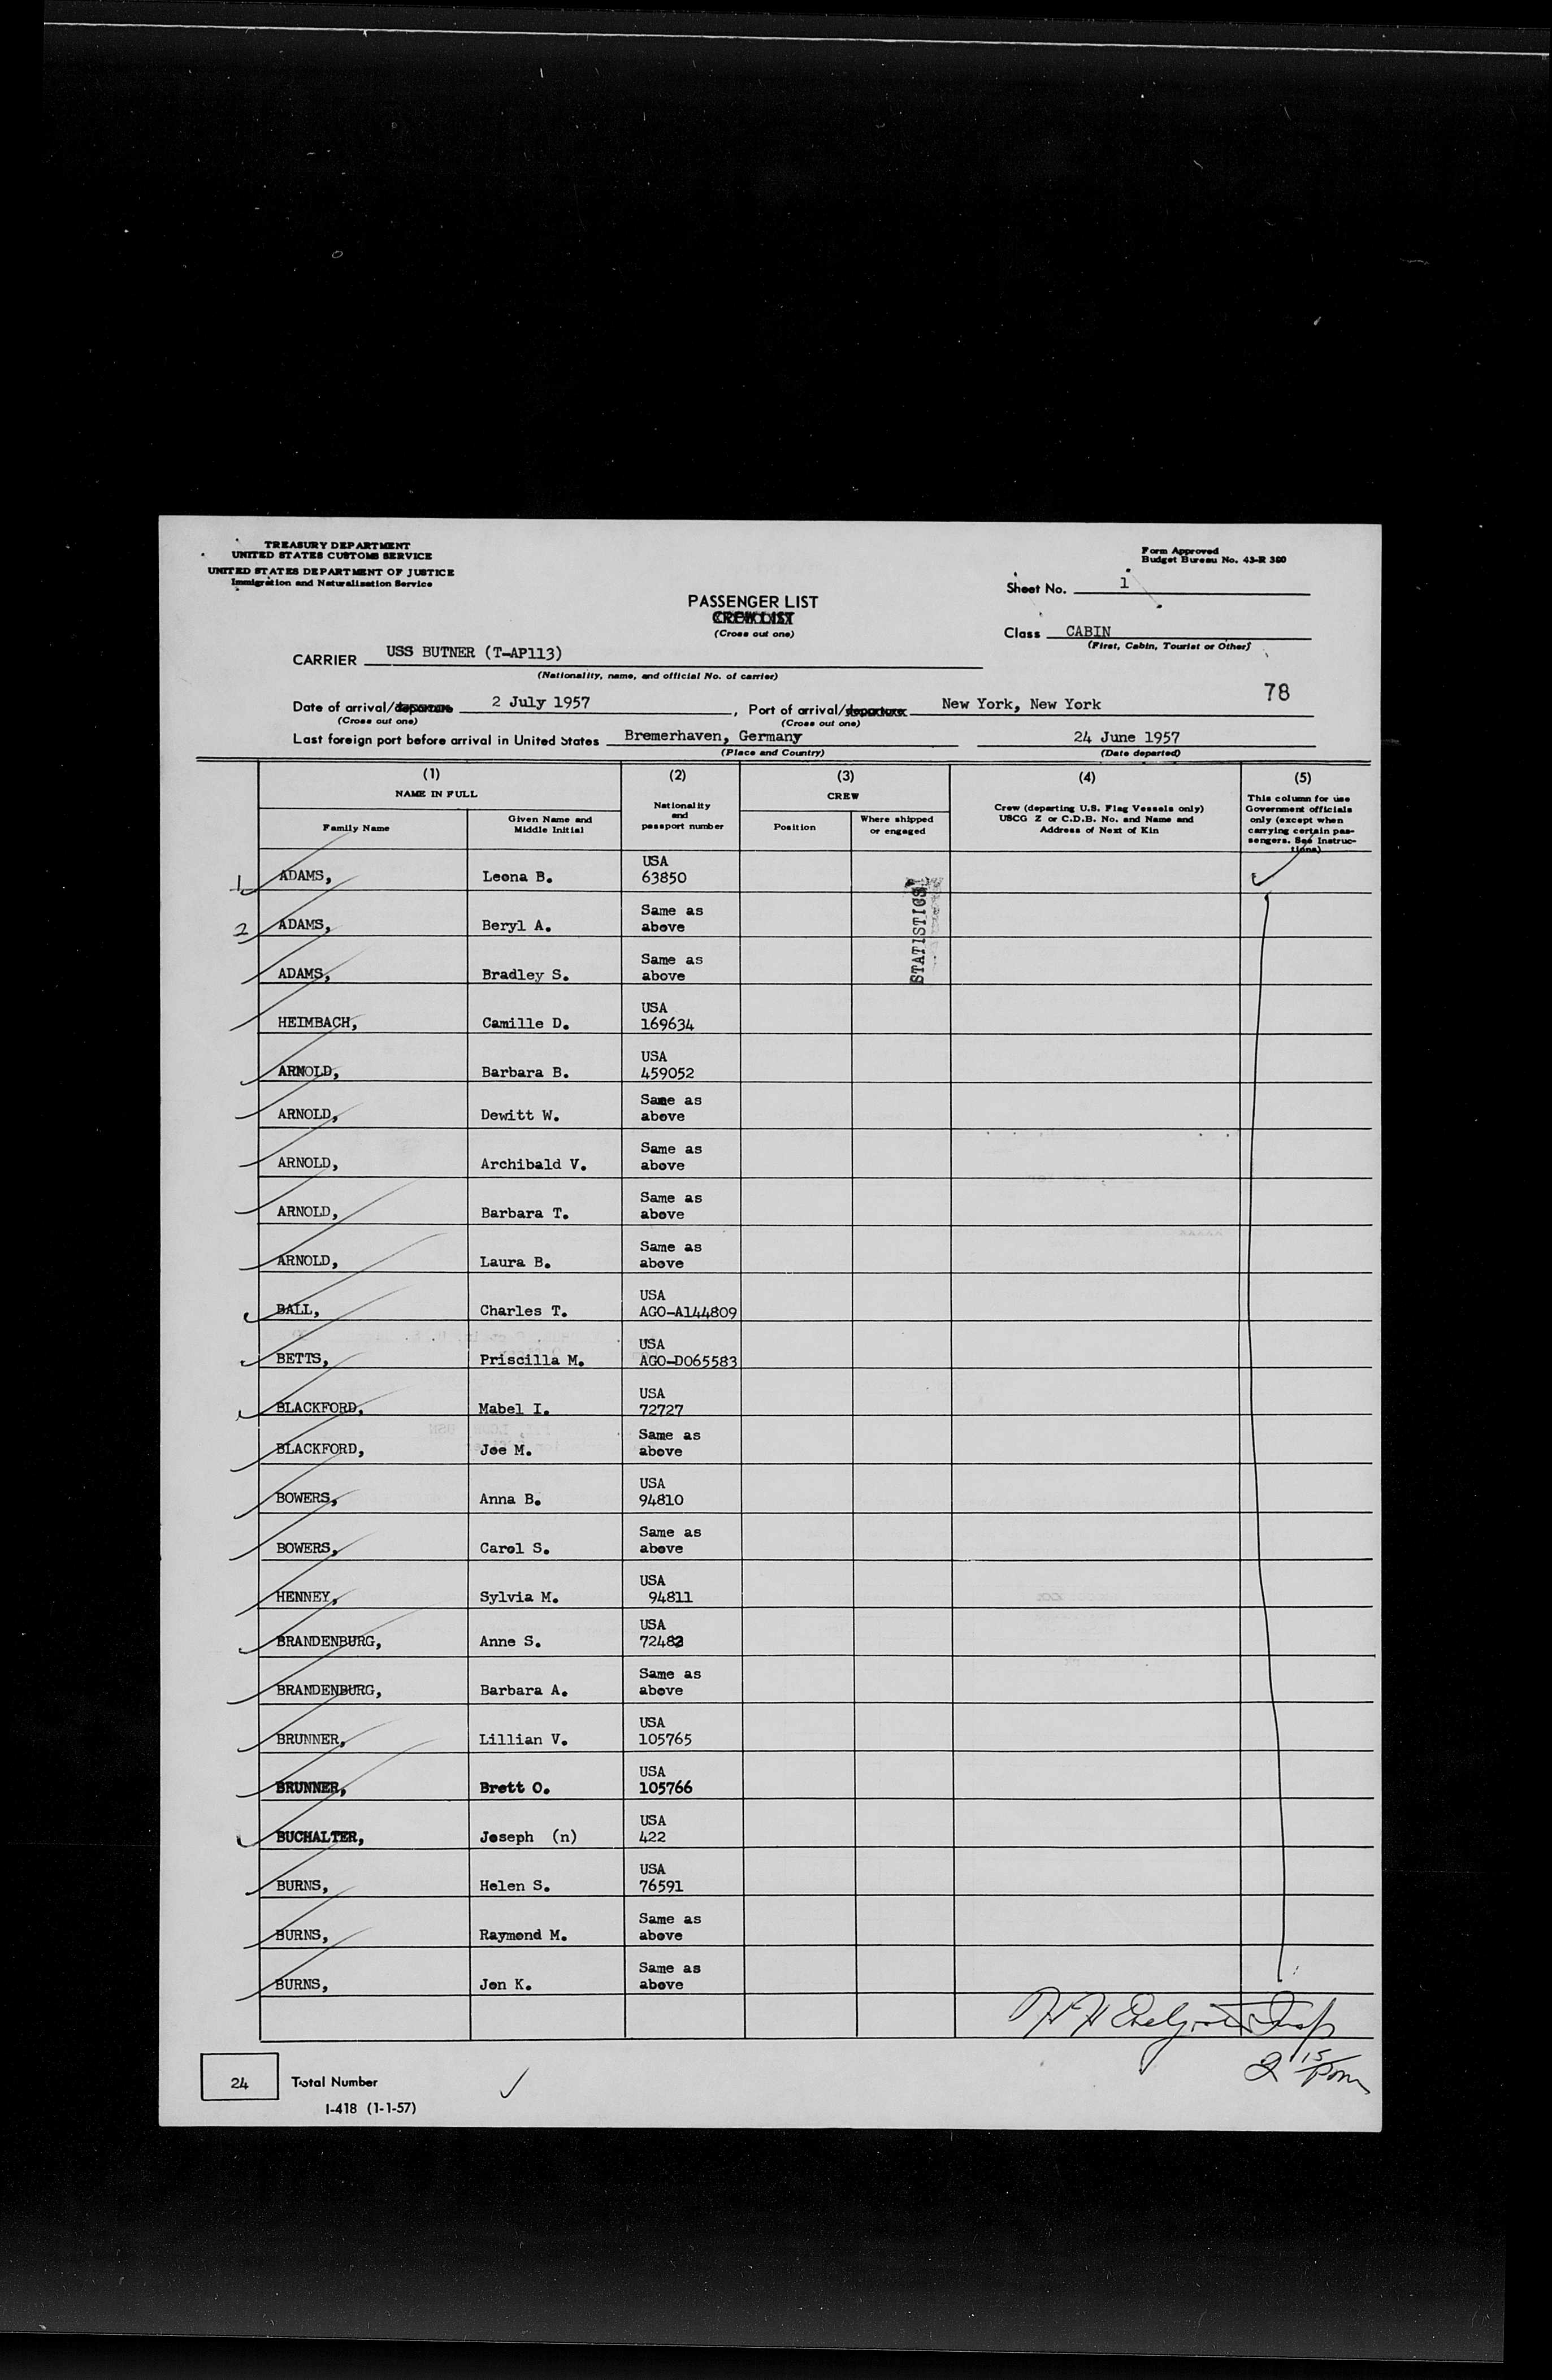 TREASURY DEPARTMENT
UNITED STATES CUSTOMS SERVICE
UNITED STATES DEPARTMENT OF JUSTICE
Immigration and Naturalization Service
Form Approved
Budget Bureau No. 43-R 360
Sheet No. 1
PASSENGER LIST
CREW LIST
(Cross out one)
Class CABIN
(First, Cabin, Tourist or Other)
CARRIER USS BUTNER (T-AP113)
(Nationality, name, and official No. of carrier)
78
Date of arrival/departure 2 July 1957, Port of arrival/departure New York, New York
(Cross out one) (Cross out one)
Last foreign port before arrival in United States Bremerhaven, Germany 24 June 1957
(Place and Country) (Date departed)
(1) (2) (3) (4) (5)
NAME IN FULL
Family Name
Given Name and Middle Initial
Nationality and passport number
CREW
Position
Where shipped or engaged
Crew (departing U.S. Flag Vessels only) USCG Z or C.D.B. No. and Name and Address of Next of Kin
This column for use Government officials only (except when carrying certain passengers. See Instructions)
STATISTICS
1 ADAMS, Leona B. USA 63850
2 ADAMS, Beryl A. Same as above
ADAMS, Bradley S. Same as above
HEIMBACH, Camille D. USA 169634
ARNOLD, Barbara B. USA 459052
ARNOLD, Dewitt W. Same as above
ARNOLD, Archibald V. Same as above
ARNOLD, Barbara T. Same as above
ARNOLD, Laura B. Same as above
BALL, Charles T. USA AGO-A144809
BETTS, Priscilla M. USA AGO-D065583
BLACKFORD, Mabel I. USA 72727
BLACKFORD, Joe M. Same as above
BOWERS, Anna B. USA 94810
BOWERS, Carol S. Same as above
HENNEY, Sylvia M. USA 94811
BRANDENBURG, Anne S. USA 72482
BRANDENBURG, Barbara A. Same as above
BRUNNER, Lillian V. USA 105765
BRUNNER, Brett O. USA 105766
BUCHALTER, Joseph (n) USA 422
BURNS, Helen S. USA 76591
BURNS, Raymond M. Same as above
BURNS, Jon K. Same as above
Insp
2 15 pm
24 Total Number
I-418 (1-1-57)